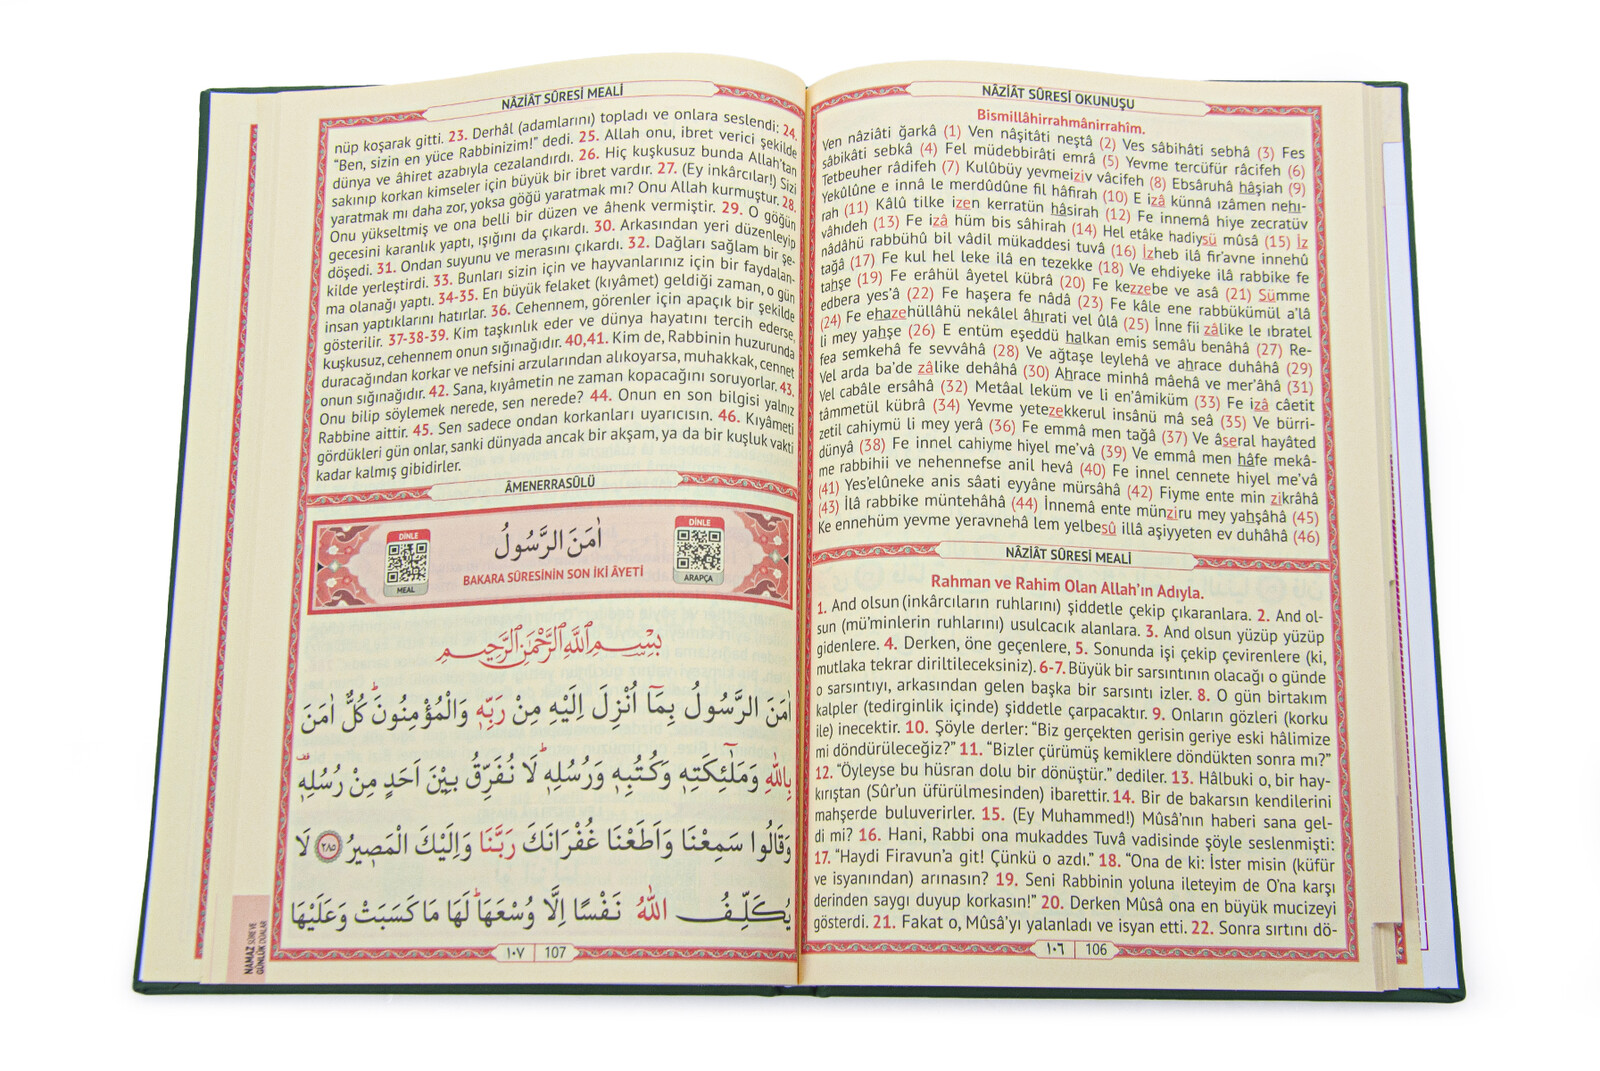 NÂZİÂT SÛRESİ OKUNUŞU
Bismillâhirrahmânirrahîm.
Ven nâziâti ğarkâ (1) Ven nâşitâti neştâ (2) Ves sâbihâti sebhâ (3) Fes
sâbikâti sebkâ (4) Fel müdebbirâti emrâ (5) Yevme tercüfür râcifeh (6)
Tetbeuher râdifeh (7) Kulûbüy yevmeiziv vâcifeh (8) Ebsâruhâ hâşiah (9)
Yekûlûne e innâ le merdûdûne fil hâfirah (10) E izâ künnâ ızâmen nehı-
rah (11) Kâlû tilke izen kerratün hâsirah (12) Fe innemâ hiye zecratüv
vâhıdeh (13) Fe izâ hüm bis sâhirah (14) Hel etâke hadiysü mûsâ (15) İz
nâdâhü rabbühû bil vâdil mükaddesi tuvâ (16) İzheb ilâ fir'avne innehû
tağâ (17) Fe kul hel leke ilâ en tezekke (18) Ve ehdiyeke ilâ rabbike fe
tahşe (19) Fe erâhül âyetel kübrâ (20) Fe kezzebe ve asâ (21) Sümme
edbera yes'â (22) Fe haşera fe nâdâ (23) Fe kâle ene rabbükümül a'lâ
(24) Fe ehazehüllâhü nekâlel âhırati vel ûlâ (25) İnne fii zâlike le ıbratel
li mey yahşe (26) E entüm eşeddü halkan emis semâ'u benâhâ (27) Re-
fea semkehâ fe sevvâhâ (28) Ve ağtaşe leylehâ ve ahrace duhâhâ (29)
Vel arda ba'de zâlike dehâhâ (30) Ahrace minhâ mâehâ ve mer'âhâ (31)
Vel cabâle ersâhâ (32) Metâal leküm ve li en'âmiküm (33) Fe izâ câetit
tâmmetül kübrâ (34) Yevme yetezekkerul insânü mâ seâ (35) Ve bürri-
zetil cahiymü li mey yerâ (36) Fe emmâ men tağâ (37) Ve âseral hayâted
dünyâ (38) Fe innel cahiyme hiyel me'vâ (39) Ve emmâ men hâfe mekâ-
me rabbihii ve nehennefse anil hevâ (40) Fe innel cennete hiyel me'vâ
(41) Yes'elûneke anis sâati eyyâne mürsâhâ (42) Fiyme ente min zikrâhâ
(43) İlâ rabbike müntehâhâ (44) İnnemâ ente münziru mey yahşâhâ (45)
Ke ennehüm yevme yeravnehâ lem yelbesû illâ aşiyyeten ev duhâhâ (46)
NÂZİÂT SÛRESİ MEALİ
Rahman ve Rahim Olan Allah'ın Adıyla.
1. And olsun (inkârcıların ruhlarını) şiddetle çekip çıkaranlara. 2. And ol-
sun (mü'minlerin ruhlarını) usulcacık alanlara. 3. And olsun yüzüp yüzüp
gidenlere. 4. Derken, öne geçenlere, 5. Sonunda işi çekip çevirenlere (ki,
mutlaka tekrar diriltileceksiniz). 6-7. Büyük bir sarsıntının olacağı o günde
o sarsıntıyı, arkasından gelen başka bir sarsıntı izler. 8. O gün birtakım
kalpler (tedirginlik içinde) şiddetle çarpacaktır. 9. Onların gözleri (korku
ile) inecektir. 10. Şöyle derler: "Biz gerçekten gerisin geriye eski hâlimize
mi döndürüleceğiz?" 11. "Bizler çürümüş kemiklere döndükten sonra mı?"
12. "Öyleyse bu hüsran dolu bir dönüştür." dediler. 13. Hâlbuki o, bir hay-
kırıştan (Sûr'un üfürülmesinden) ibarettir. 14. Bir de bakarsın kendilerini
mahşerde buluverirler. 15. (Ey Muhammed!) Mûsâ'nın haberi sana gel-
di mi? 16. Hani, Rabbi ona mukaddes Tuvâ vadisinde şöyle seslenmişti:
17. "Haydi Firavun'a git! Çünkü o azdı." 18. "Ona de ki: İster misin (küfür
ve isyanından) arınasın? 19. Seni Rabbinin yoluna ileteyim de O'na karşı
derinden saygı duyup korkasın!" 20. Derken Mûsâ ona en büyük mucizeyi
gösterdi. 21. Fakat o, Mûsâ'yı yalanladı ve isyan etti. 22. Sonra sırtını dö-
١٠٦ 106
NÂZİÂT SÛRESİ MEALİ
nüp koşarak gitti. 23. Derhâl (adamlarını) topladı ve onlara seslendi: 24.
"Ben, sizin en yüce Rabbinizim!" dedi. 25. Allah onu, ibret verici şekilde
dünya ve âhiret azabıyla cezalandırdı. 26. Hiç kuşkusuz bunda Allah'tan
sakınıp korkan kimseler için büyük bir ibret vardır. 27. (Ey inkârcılar!) Sizi
yaratmak mı daha zor, yoksa göğü yaratmak mı? Onu Allah kurmuştur. 28.
Onu yükseltmiş ve ona belli bir düzen ve âhenk vermiştir. 29. O göğün
gecesini karanlık yaptı, ışığını da çıkardı. 30. Arkasından yeri düzenleyip
döşedi. 31. Ondan suyunu ve merasını çıkardı. 32. Dağları sağlam bir şe-
kilde yerleştirdi. 33. Bunları sizin için ve hayvanlarınız için bir faydalan-
ma olanağı yaptı. 34-35. En büyük felaket (kıyâmet) geldiği zaman, o gün
insan yaptıklarını hatırlar. 36. Cehennem, görenler için apaçık bir şekilde
gösterilir. 37-38-39. Kim taşkınlık eder ve dünya hayatını tercih ederse,
kuşkusuz, cehennem onun sığınağıdır. 40,41. Kim de, Rabbinin huzurunda
duracağından korkar ve nefsini arzularından alıkoyarsa, muhakkak, cennet
onun sığınağıdır. 42. Sana, kıyâmetin ne zaman kopacağını soruyorlar. 43.
Onu bilip söylemek nerede, sen nerede? 44. Onun en son bilgisi yalnız
Rabbine aittir. 45. Sen sadece ondan korkanları uyarıcısın. 46. Kıyâmeti
gördükleri gün onlar, sanki dünyada ancak bir akşam, ya da bir kuşluk vakti
kadar kalmış gibidirler.
ÂMENERRASÛLÜ
DİNLE
MEAL
اٰمَنَ الرَّسُولُ
BAKARA SÛRESİNİN SON İKİ ÂYETİ
DİNLE
ARAPÇA
بِسْمِ اللهِ الرَّحْمٰنِ الرَّحِيمِ
اٰمَنَ الرَّسُولُ بِمَٓا اُنْزِلَ اِلَيْهِ مِنْ رَبِّهٖ وَالْمُؤْمِنُونَۜ كُلٌّ اٰمَنَ
بِاللهِ وَمَلٰٓئِكَتِهٖ وَكُتُبِهٖ وَرُسُلِهٖۜ لَا نُفَرِّقُ بَيْنَ اَحَدٍ مِنْ رُسُلِهٖ
وَقَالُوا سَمِعْنَا وَاَطَعْنَا غُفْرَانَكَ رَبَّنَا وَاِلَيْكَ الْمَصٖيرُ ٢٨٥ لَا
يُكَلِّفُ اللهُ نَفْسًا اِلَّا وُسْعَهَاۜ لَهَا مَا كَسَبَتْ وَعَلَيْهَا
١٠٧ 107
NAMAZ SÛRE VE
GÜNLÜK DUALAR